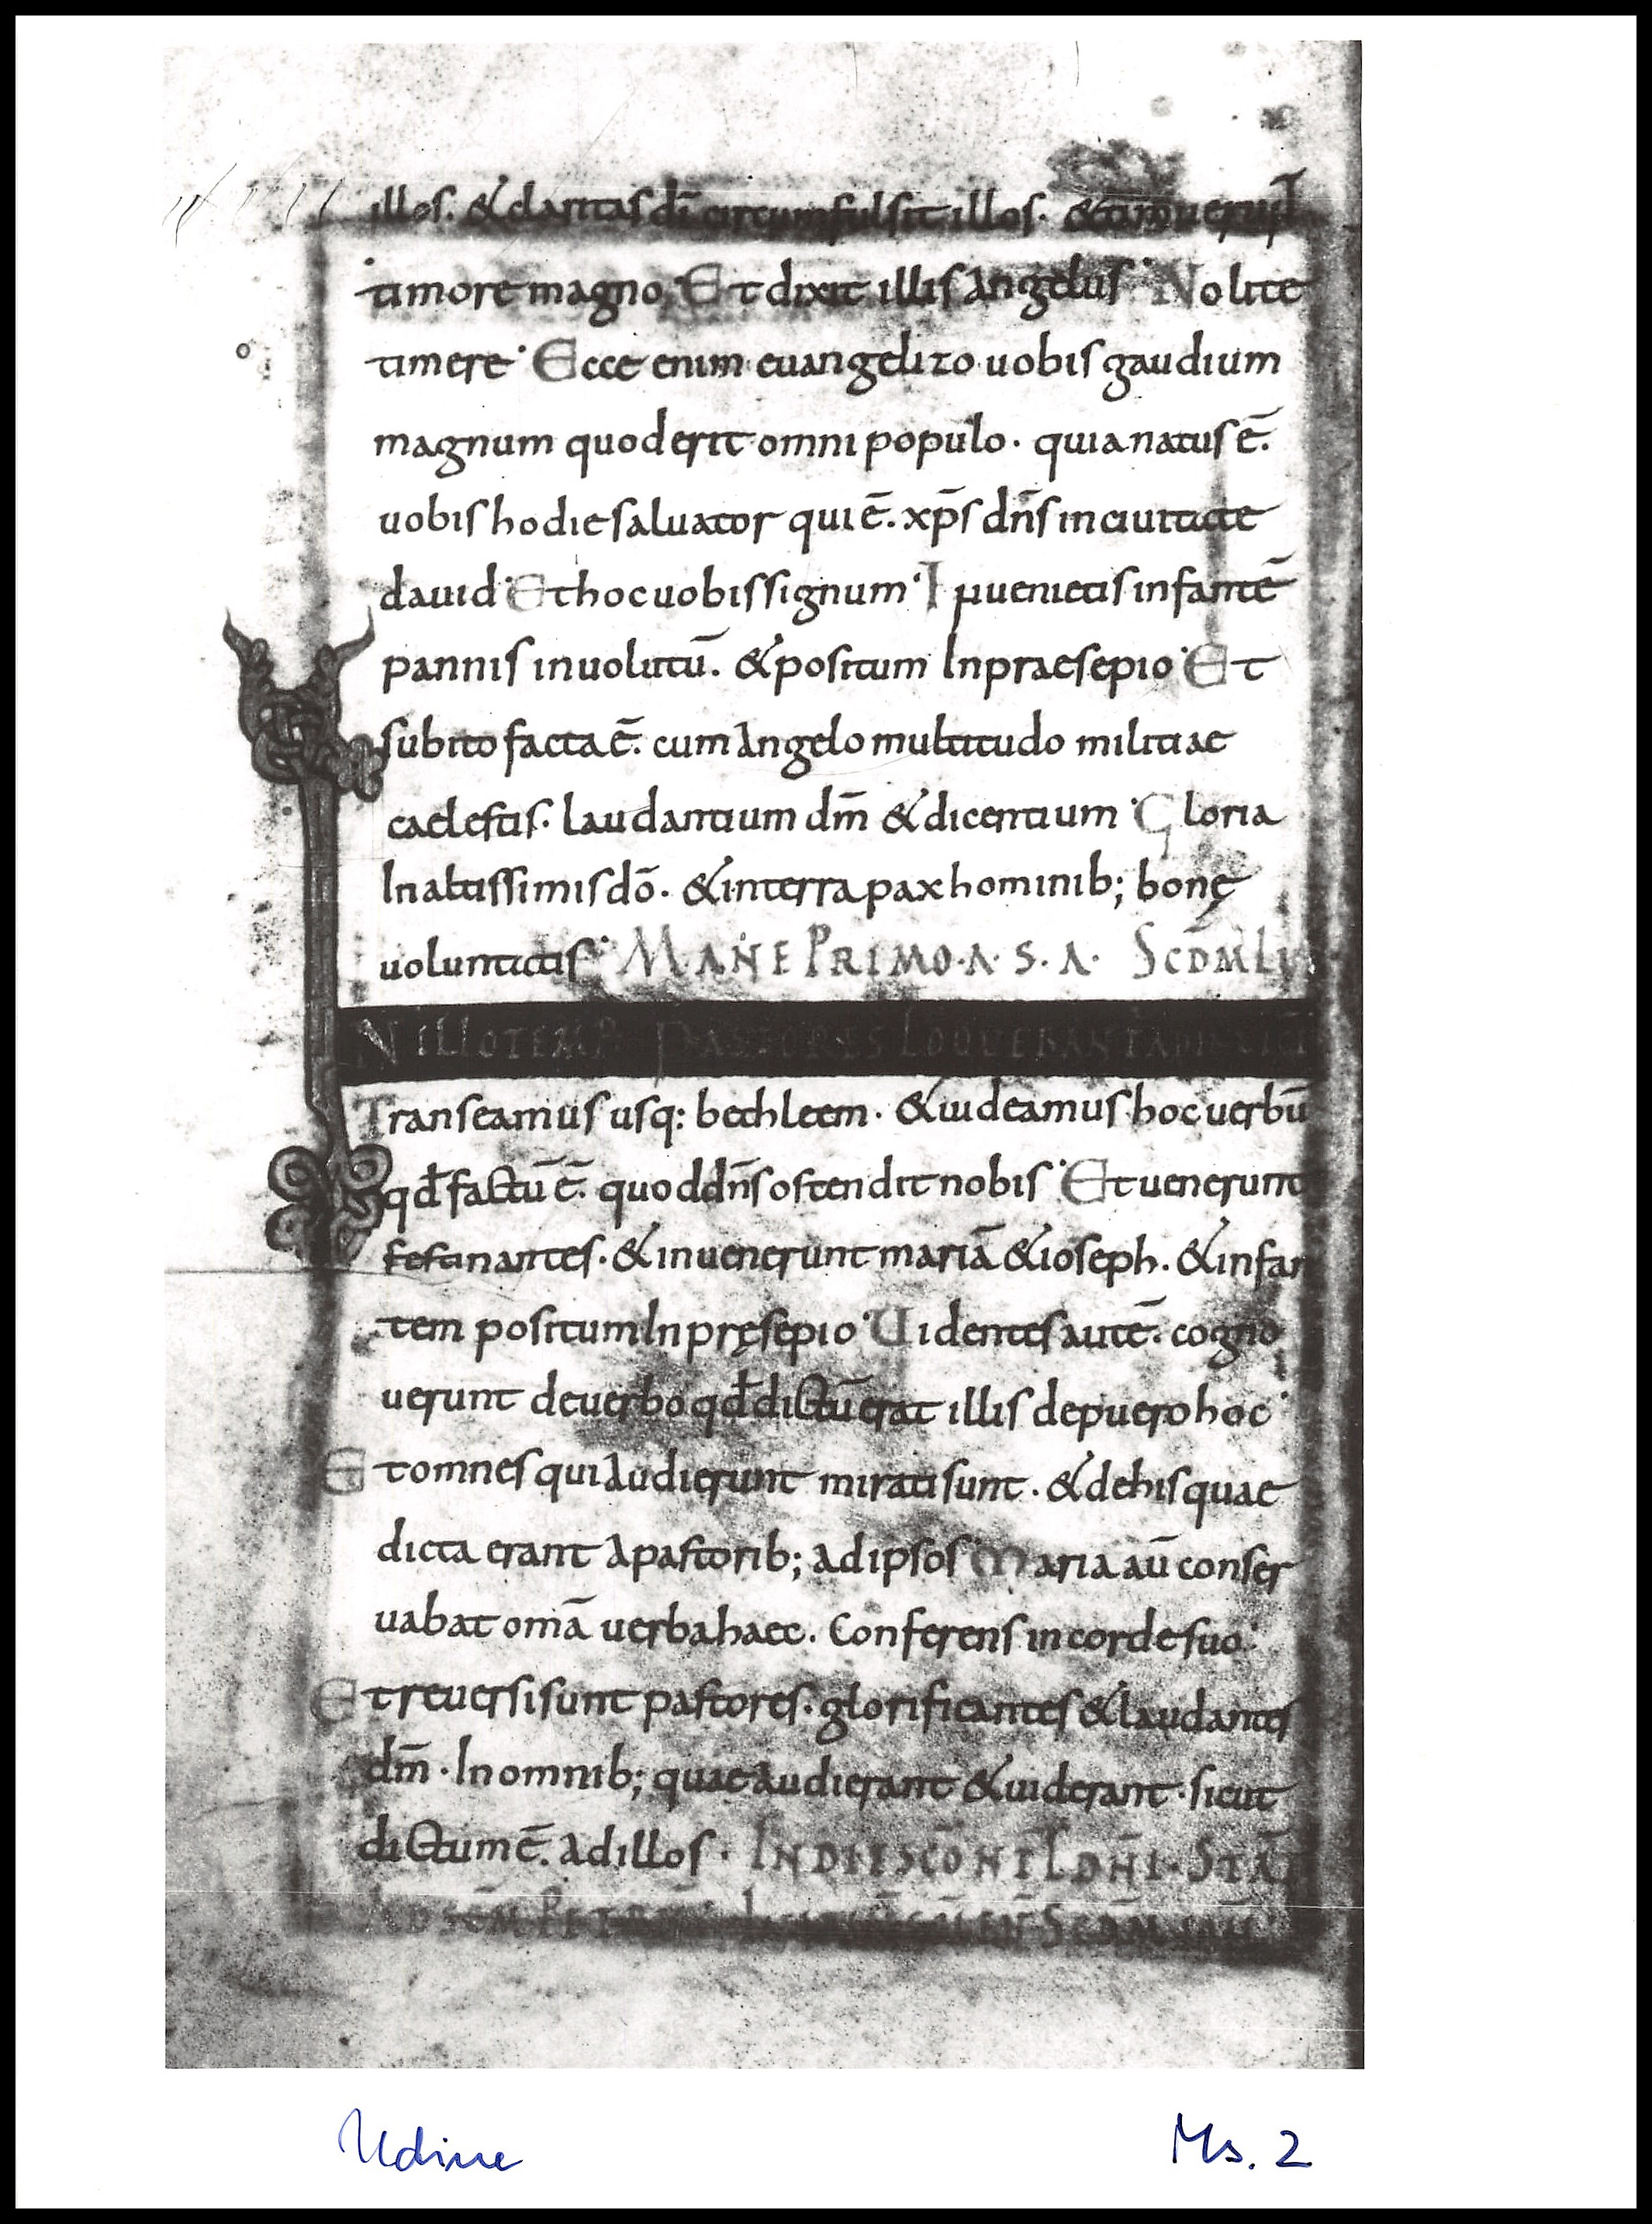 illos. & claritas dī circumfulsit illos. & timuerunt
timore magno Et dixit illis angelus Nolite
timere Ecce enim euangelizo uobis gaudium
magnum quod erit omni populo. quia natus ē.
uobis hodie saluator qui ē. xp̄s dn̄s in ciuitate
dauid Et hoc uobis signum Inuenietis infantē
pannis inuolutū. & positum In praesepio Et
subito facta ē. cum angelo multitudo militiae
caelestis. laudantium dm̄ & dicentium Gloria
In altissimis dō. & in terra pax hominib; bonę
uoluntatis MANE PRIMO A. S. A. SCDM LV
N ILLO TEMP PASTORES LOQUEBANT AD
Transeamus usq: bethleem. & uideamus hoc uerbū
qd̄ factū ē. quod dn̄s ostendit nobis Et uenerunt
festinantes. & inuenerunt mariā & ioseph. & infan
tem positum In pręsepio Uidentes autē. cogno
uerunt de uerbo qd̄ dictū erat illis de puero hoc
Et omnes qui audierunt mirati sunt. & de his quae
dicta erant a pastorib; ad ipsos Maria aū conser
uabat om̄a uerba haec. Conferens in corde suo
Et reuersi sunt pastores. glorificantes & laudantes
dm̄. In omnib; quae audierant & uiderant. sicut
dictum ē. ad illos. IN DIE SCŌ NTL DN̄I. STĀ
AD SCM̄ PETRUM SCDM
Udine Ms. 2